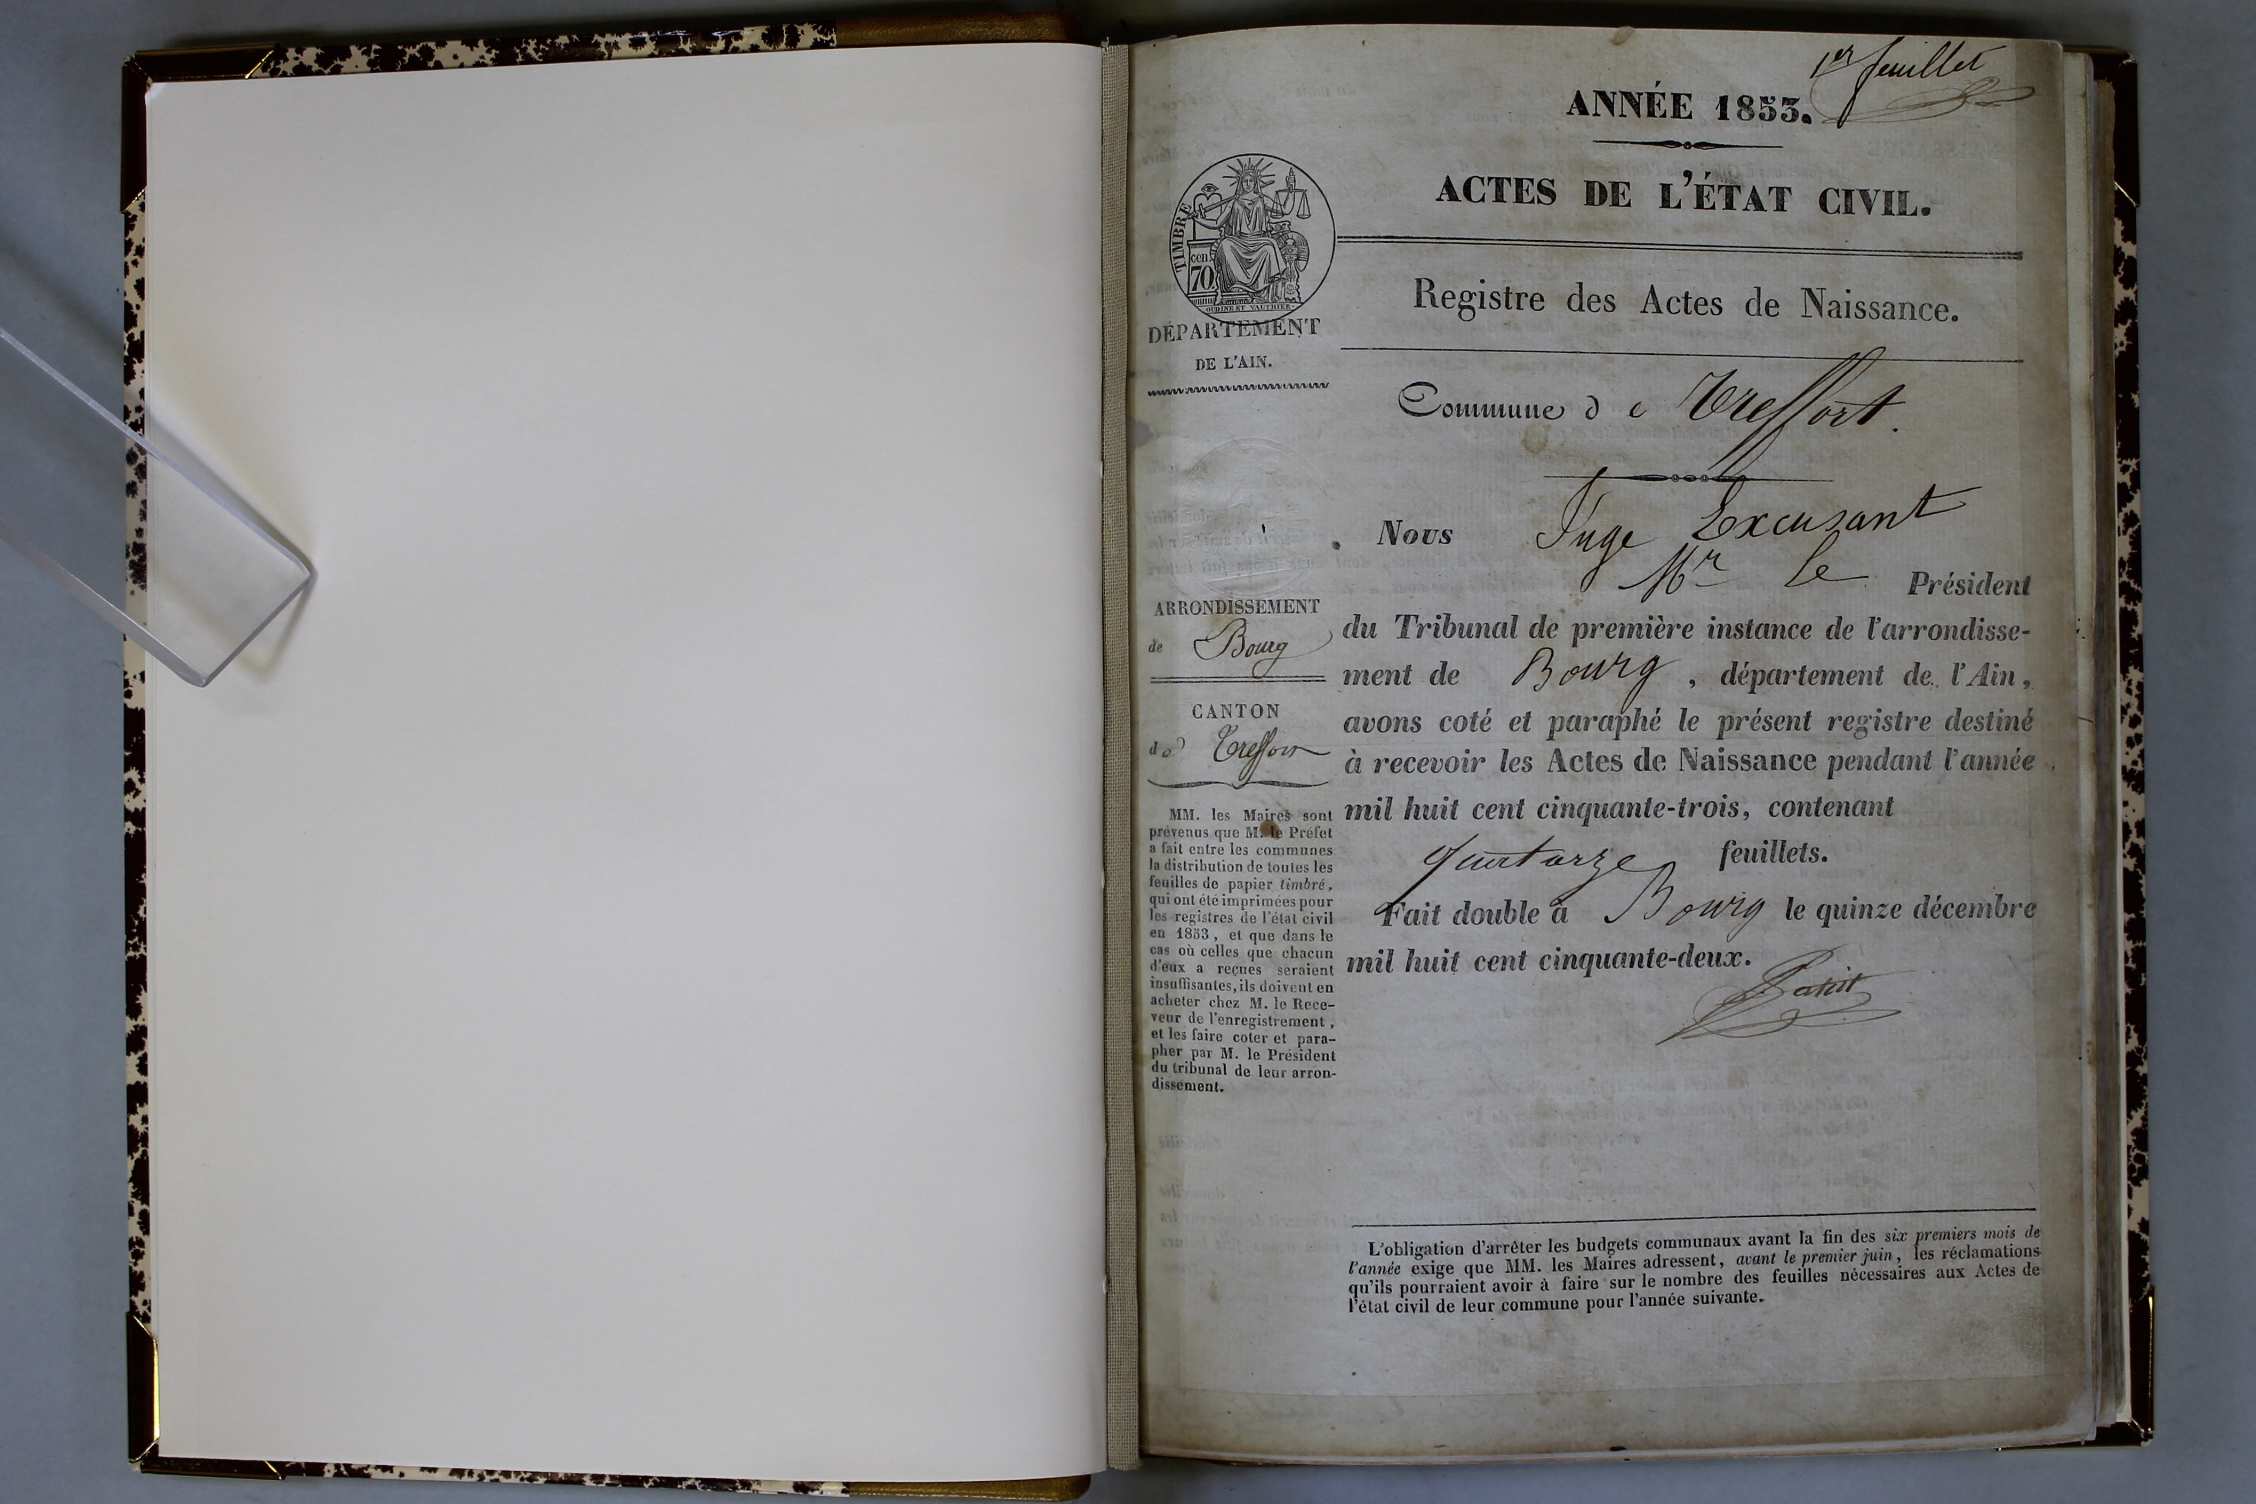 1er feuillet
ANNÉE 1853.
ACTES DE L'ÉTAT CIVIL.
TIMBRE
cen.
70
OUDINÉ ET VAUTHIER
DÉPARTEMENT
DE L'AIN.
Registre des Actes de Naissance.
Commune de Treffort.
ARRONDISSEMENT
de Bourg
CANTON
de Treffort
MM. les Maires sont
prévenus que M. le Préfet
a fait entre les communes
la distribution de toutes les
feuilles de papier timbré,
qui ont été imprimées pour
les registres de l'état civil
en 1853, et que dans le
cas où celles que chacun
d'eux a reçues seraient
insuffisantes, ils doivent en
acheter chez M. le Rece-
veur de l'enregistrement,
et les faire coter et para-
pher par M. le Président
du tribunal de leur arron-
dissement.
Nous Juge Excusant
Mr Le Président
du Tribunal de première instance de l'arrondisse-
ment de Bourg, département de l'Ain,
avons coté et paraphé le présent registre destiné
à recevoir les Actes de Naissance pendant l'année
mil huit cent cinquante-trois, contenant
quatorze feuillets.
Fait double à Bourg le quinze décembre
mil huit cent cinquante-deux.
L'obligation d'arrêter les budgets communaux avant la fin des six premiers mois de
l'année exige que MM. les Maires adressent, avant le premier juin, les réclamations
qu'ils pourraient avoir à faire sur le nombre des feuilles nécessaires aux Actes de
l'état civil de leur commune pour l'année suivante.